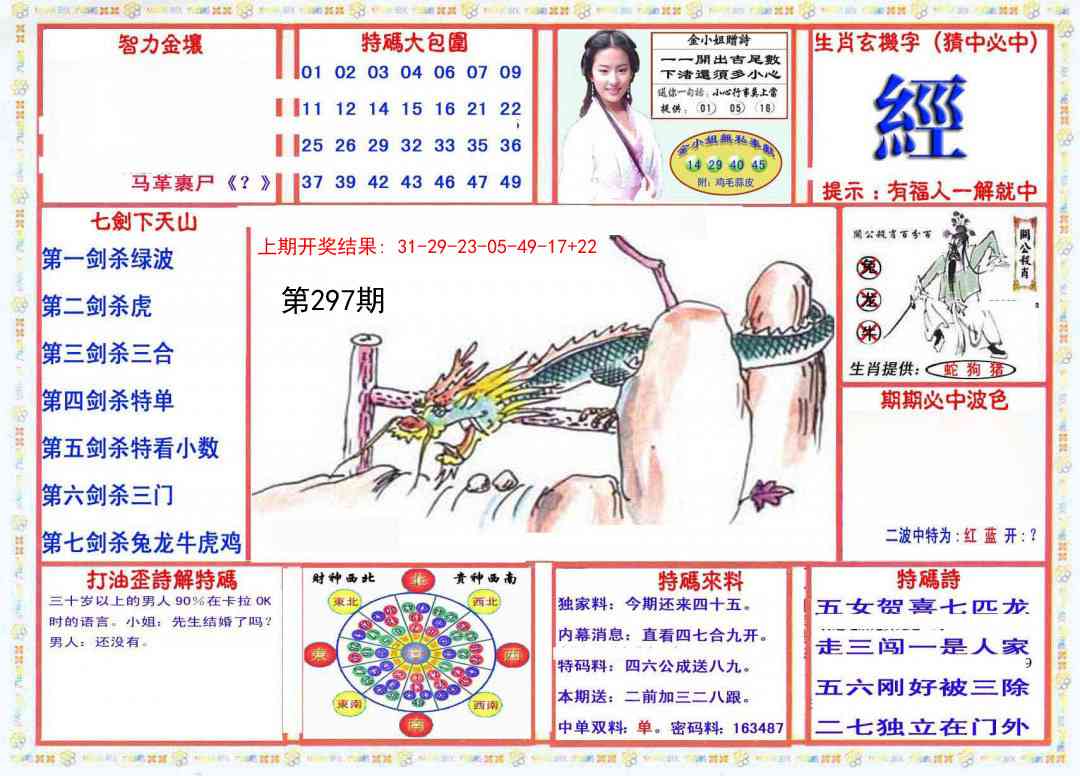 智力金壤
马革裹尸《？》
特碼大包圍
01 02 03 04 06 07 09
11 12 14 15 16 21 22
25 26 29 32 33 35 36
37 39 42 43 46 47 49
金小姐贈詩
一一開出吉尾數
下渚還須多小心
送你一句話：小心行事莫上當
提供：（01） 05） （16）
金小姐無私奉獻
14 29 40 45
附：鸡毛蒜皮
生肖玄機字（猜中必中）
經
提示：有福人一解就中
七劍下天山
第一剑杀绿波
第二剑杀虎
第三剑杀三合
第四剑杀特单
第五剑杀特看小数
第六剑杀三门
第七剑杀兔龙牛虎鸡
上期开奖结果：31-29-23-05-49-17+22
第297期
關公殺肖百分百
關公殺肖
兔
龙
牛
生肖提供：蛇 狗 猪
期期必中波色
二波中特为：红 蓝 开：？
打油歪詩解特碼
三十岁以上的男人90％在卡拉OK
时的语言。小姐：先生结婚了吗？
男人：还没有。
財神西北 貴神西南
北
東北 西北
東 西
東南 西南
南
特碼來料
独家料：今期还来四十五。
内幕消息：直看四七合九开。
特码料：四六公成送八九。
本期送：二前加三二八跟。
中单双料：单。密码料：163487
特碼詩
五女贺喜七匹龙
走三闯一是人家
9
五六刚好被三除
二七独立在门外